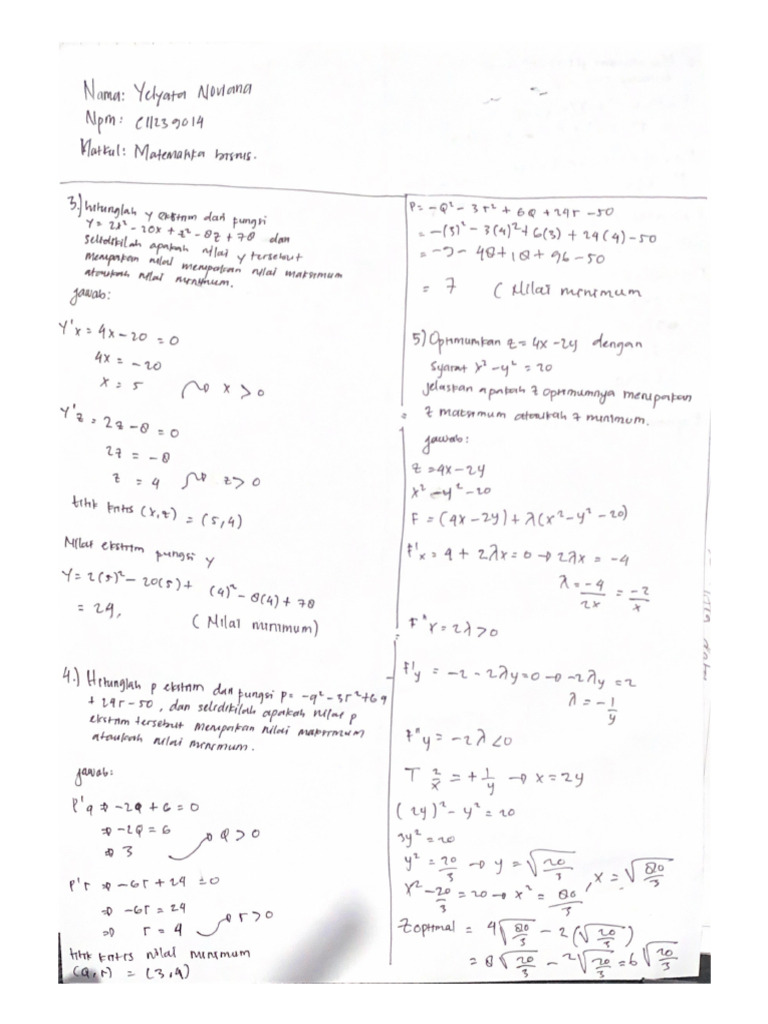 Nama: Yelyata Noviana
Npm: C11239014
Matkul: Matematika bisnis.
3.) hitunglah y ekstrim dari fungsi
y = 2x² - 20x + z² - 8z + 78 dan
selidikilah apakah nilai y tersebut
merupakan nilai merupakan nilai maksimum
ataukah nilai minimum.
jawab:
Y'x = 4x - 20 = 0
4x = -20
x = 5 x > 0
Y'z = 2z - 8 = 0
2z = -8
z = 4 z > 0
titik kritis (x,z) = (5,4)
Nilai ekstrim fungsi y
Y = 2(5)² - 20(5) + (4)² - 8(4) + 78
= 24, (Nilai minimum)
4.) Hitunglah p ekstrim dari fungsi p = -q² - 3r² + 6q
+ 24r - 50, dan selidikilah apakah nilai p
ekstrim tersebut merupakan nilai maksimum
ataukah nilai minimum.
jawab:
P'q ⇒ -2q + 6 = 0
⇒ -2q = 6
⇒ 3 Q > 0
P'r ⇒ -6r + 24 = 0
⇒ -6r = 24
⇒ r = 4 r > 0
titik kritis nilai minimum
(q, r) = (3,4)
P = -Q² - 3r² + 6Q + 24r - 50
= -(3)² - 3(4)² + 6(3) + 24(4) - 50
= -9 - 48 + 18 + 96 - 50
= 7 (Nilai minimum
5) Optimumkan z = 4x - 2y dengan
syarat x² - y² = 20
jelaskan apakah z optimumnya merupakan
z maksimum ataukah z minimum.
jawab:
z = 4x - 2y
x² - y² - 20
F = (4x - 2y) + λ(x² - y² - 20)
F'x = 4 + 2λx = 0 → 2λx = -4
λ = -4/2x = -2/x
F"x = 2λ > 0
F'y = -2 - 2λy = 0 → -2λy = 2
λ = -1/y
F"y = -2λ < 0
T 2/x = +1/y → x = 2y
(2y)² - y² = 20
3y² = 20
y² = 20/3 → y = √20/3
x² - 20/3 = 20 → x² = 80/3, x = √80/3
Z optimal = 4√80/3 - 2(√20/3)
= 8√20/3 - 2√20/3 = 6√20/3